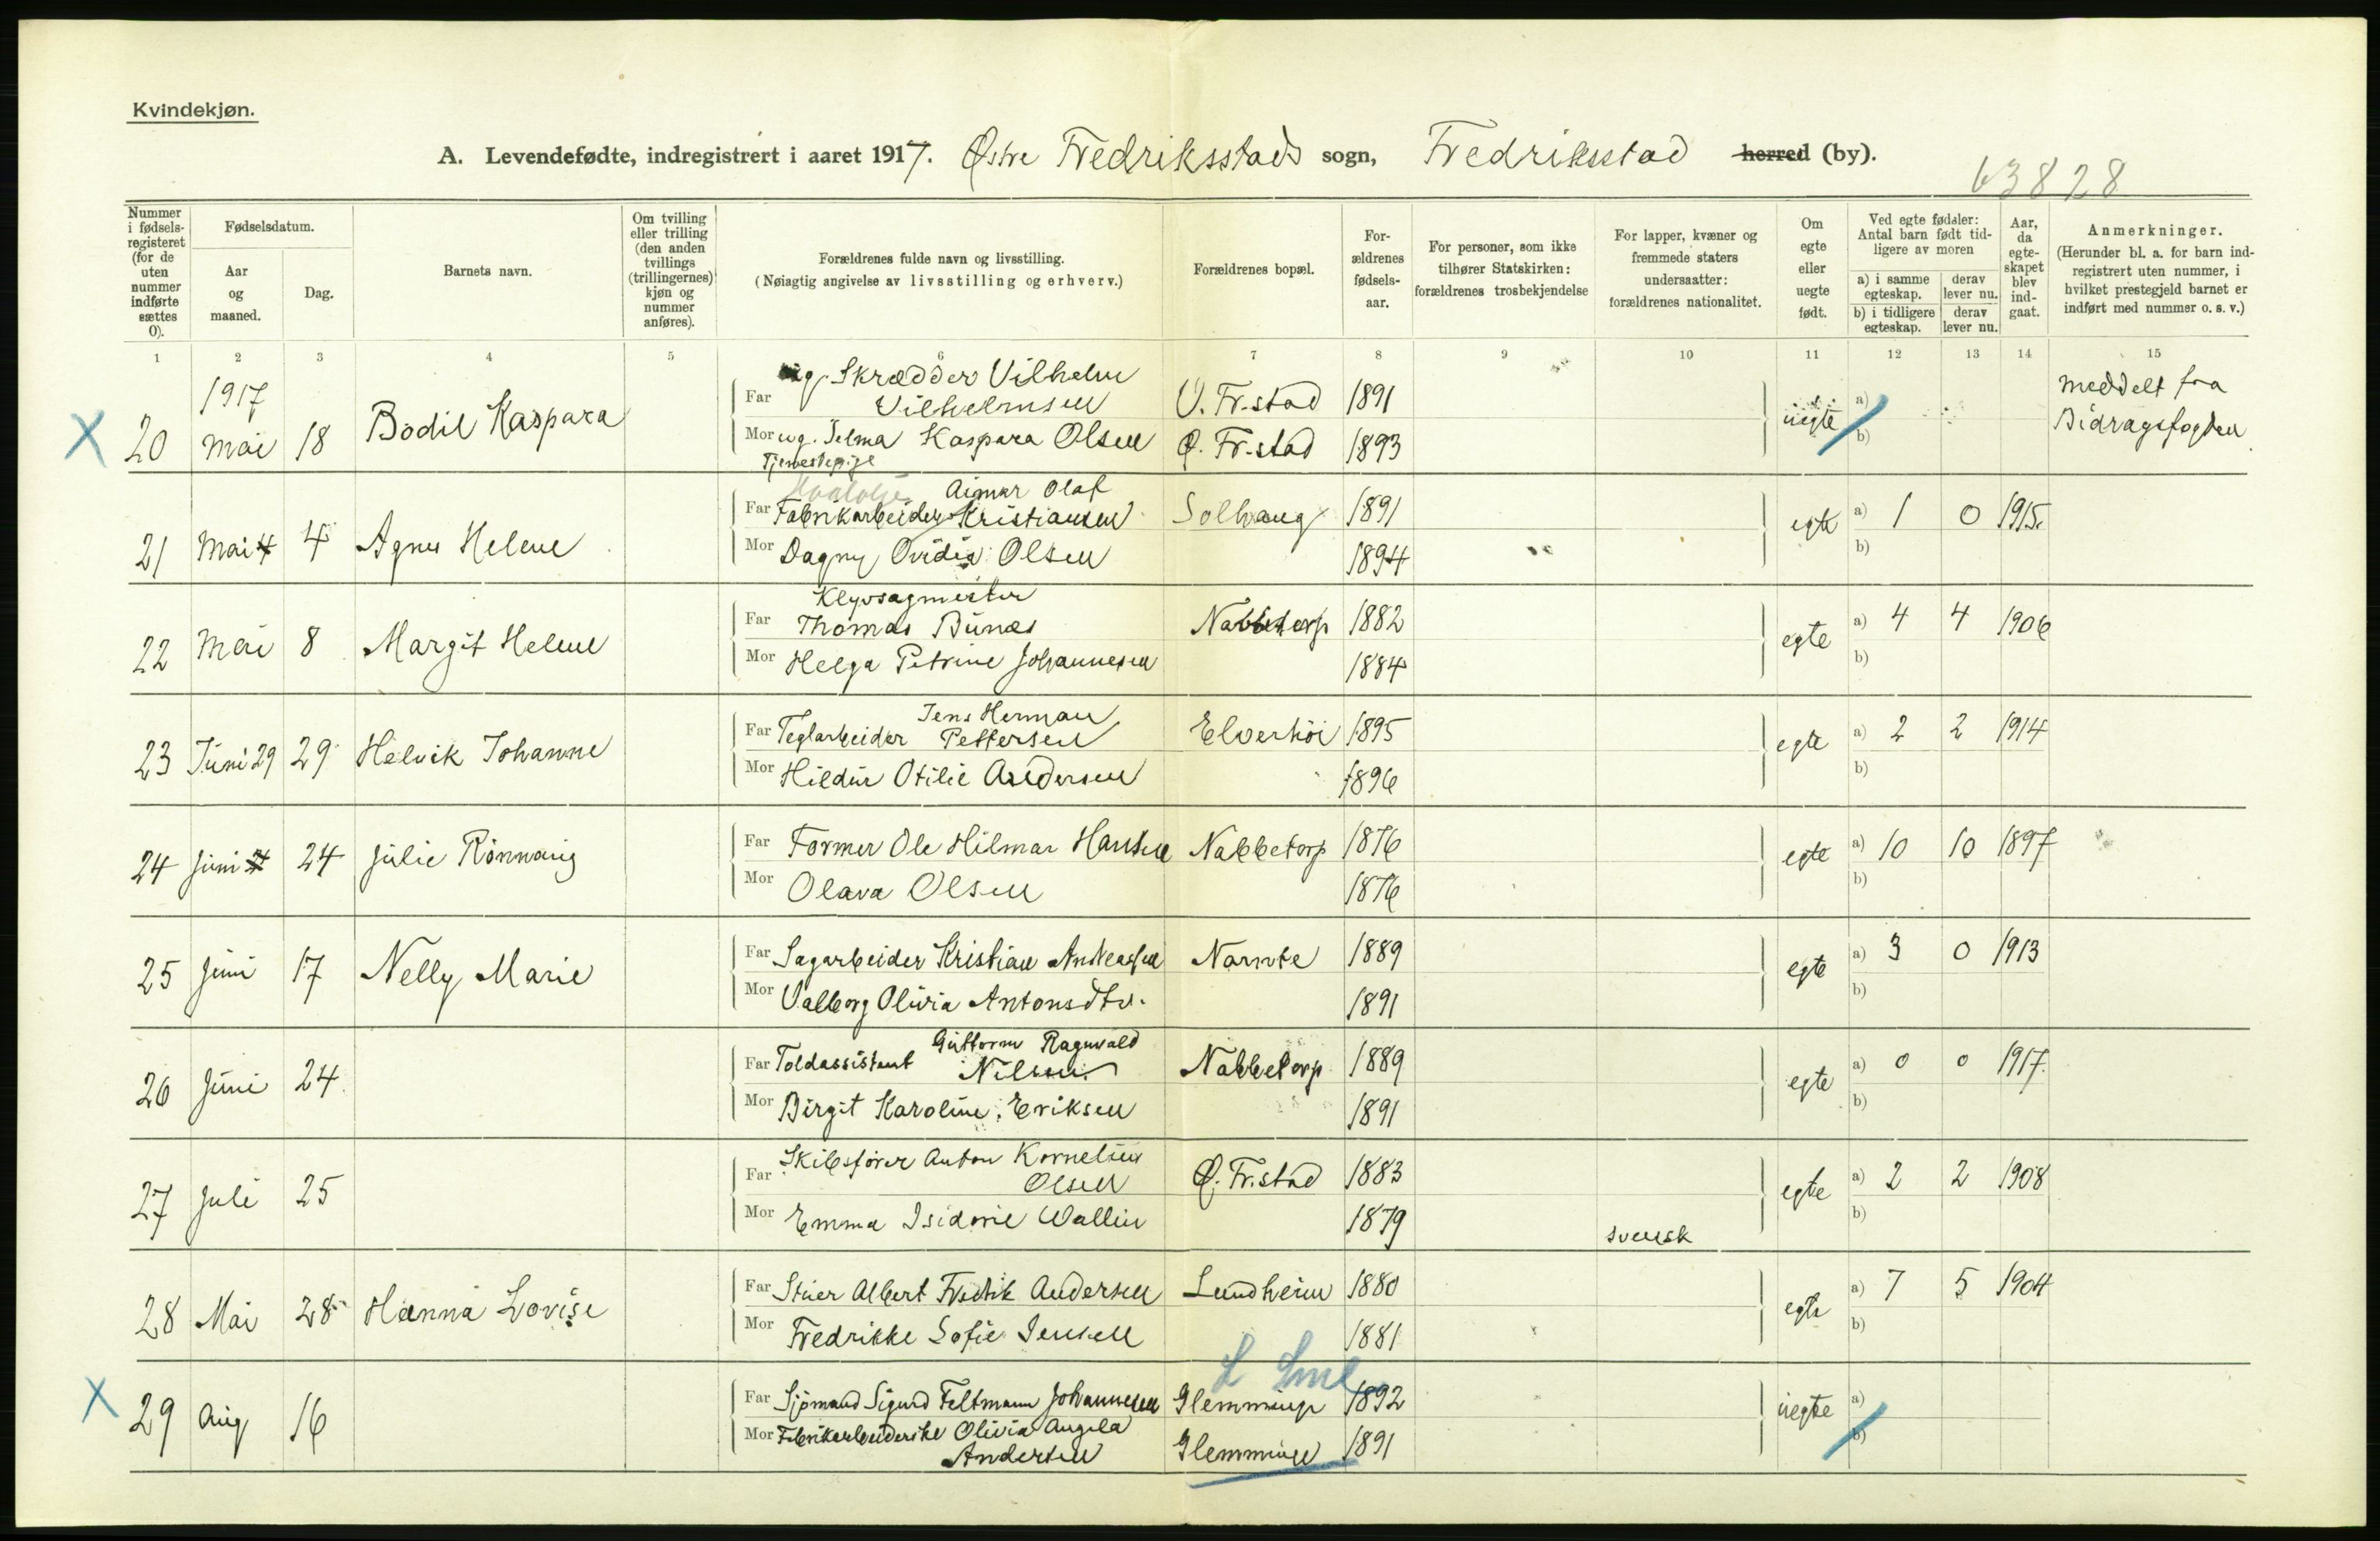 Kvindekjøn.
A. Levendefødte, indregistrert i aaret 1917. Østre Fredriksstads sogn, Fredriksstad herred (by).
63828
Nummer i fødsels-registeret (for de uten nummer indførte sættes 0).
Fødselsdatum.
Aar og maaned.
Dag.
Barnets navn.
Om tvilling eller trilling (den anden tvillings (trillingernes) kjøn og nummer anføres).
Forældrenes fulde navn og livsstilling.
(Nøiagtig angivelse av livsstilling og erhverv.)
Forældrenes bopæl.
For-ældrenes fødsels-aar.
For personer, som ikke tilhører Statskirken: forældrenes trosbekjendelse
For lapper, kvæner og fremmede staters undersaatter: forældrenes nationalitet.
Om egte eller uegte født.
Ved egte fødsler: Antal barn født tid-ligere av moren
a) i samme egteskap.
derav lever nu.
b) i tidligere egteskap.
derav lever nu.
Aar, da egte-skapet blev ind-gaat.
Anmerkninger.
(Herunder bl. a. for barn ind-registrert uten nummer, i hvilket prestegjeld barnet er indført med nummer o. s. v.)
1 2 3 4 5 6 7 8 9 10 11 12 13 14 15
X 20 1917 Mai 18 Bodil Kaspara
Far ug. Skrædder Vilhelm Vilhelmsen V. Fr.stad 1891
Mor ug. Selma Kaspara Olsen Ø. Fr.stad 1893
Tjenestepige
uegte a) b)
Meddelt fra Bidragsfogden
21 Mai 4 4 Agnes Helene
Far Fabrikarbeider Aimar Olaf Kristiansen Solvang 1891
Mor Dagny Ovidia Olsen 1894
egte a) 1 0 1915 b)
22 Mai 8 Margit Helene
Far Kløvsagmester Thomas Bünæs Nabbetorp 1882
Mor Helga Petrine Johannesen 1884
egte a) 4 4 1906 b)
23 Juni 29 29 Helvik Johanne
Far Teglarbeider Jens Herman Pettersen Elverhöi 1895
Mor Hildur Otilie Andersen 1896
egte a) 2 2 1914 b)
24 Juni 24 Julie Rönnaug
Far Former Ole Hilmar Hansen Nabbetorp 1876
Mor Olava Olsen 1876
egte a) 10 10 1897 b)
25 Juni 17 Nelly Marie
Far Sagarbeider Kristian Andreassen Narnte 1889
Mor Valborg Olivia Antonsdtr. 1891
egte a) 3 0 1913 b)
26 Juni 24
Far Toldassistent Guttorm Ragnvald Nilsen Nabbetorp 1889
Mor Birgit Karoline Eriksen 1891
egte a) 0 0 1917 b)
27 Juli 25
Far Skibsfører Anton Kornelius Olsen Ø. Fr.stad 1883
Mor Emma Isidorie Wallin 1879 svensk
egte a) 2 2 1908 b)
28 Mai 28 Hanna Lovise
Far Stuer Albert Fredrik Andersen Lundheim 1880
Mor Fredrikke Sofie Jensen 1881
egte a) 7 5 1904 b)
X 29 Aug 16
Far Sjömand Sigurd Feltmann Johannesen Glemminge 1892
Mor Fabrikarbeiderske Olivia Angela Andersen Glemminge 1891
uegte a) b)